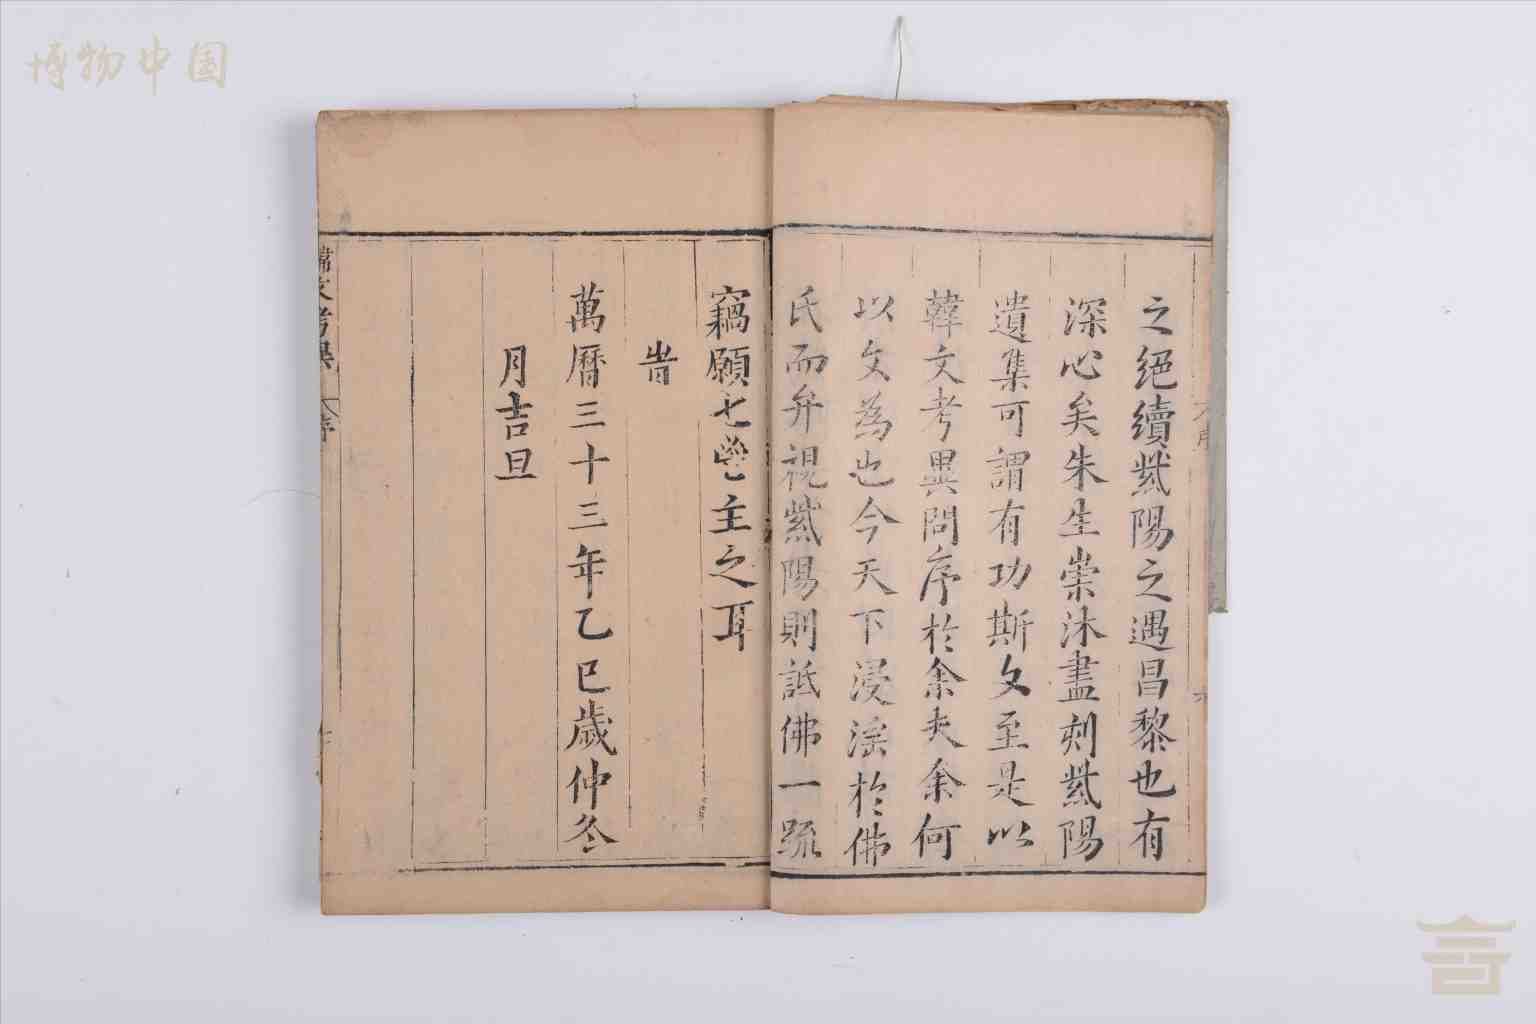 博物中国
之絕續紫陽之遇昌黎也有
深心矣朱生崇沐盡刻紫陽
遺集可謂有功斯文至是以
韓文考異問序於余夫余何
以文為也今天下浸淫於佛
氏而弁視紫陽則詆佛一疏
竊願七
主之耳
旹
萬曆三十三年乙巳歲仲冬
月吉旦
韓文考異
序